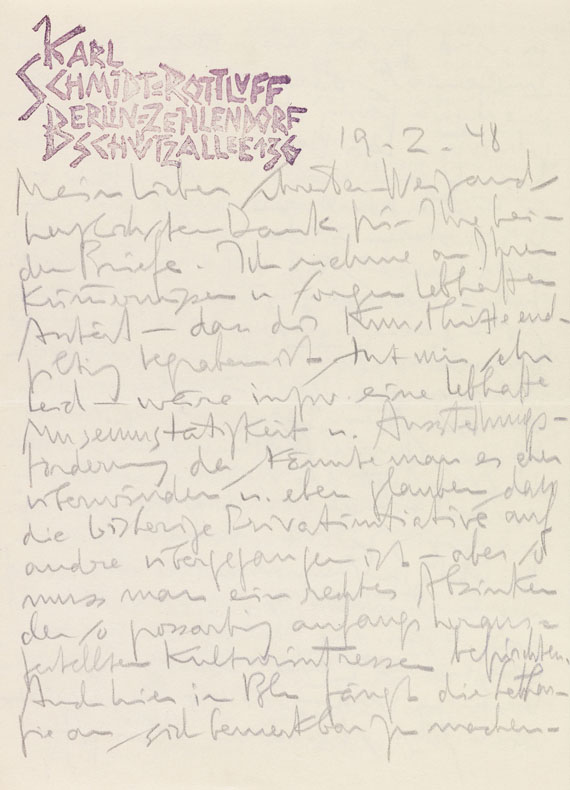 KARL
SCHMIDT=ROTTLUFF
BERLIN=ZEHLENDORF
SCHÜTZALLEE 136
19 - 2 - 48
Mein lieber Weigand
herzlichsten Dank für Ihre bei-
den Briefe. Ich nehme an Ihren
Kümmernissen u Sorgen lebhaften
Anteil – dass die Kunsthütte end-
gültig begraben ist tut mir sehr
leid – wäre eine lebhafte
Museumstätigkeit u. Ausstellungs-
förderung da, könnte man es eher
überwinden u. eben glauben dass
die bisherige Privatinitiative auf
andre übergegangen ist – aber so
muss man ein rechtes Absinken
der so grossartig anfangs heraus=
gestellten Kulturintressen befürchten.
Auch hier in Bln fängt die Lethar-
gie an sich bemerkbar zu machen –